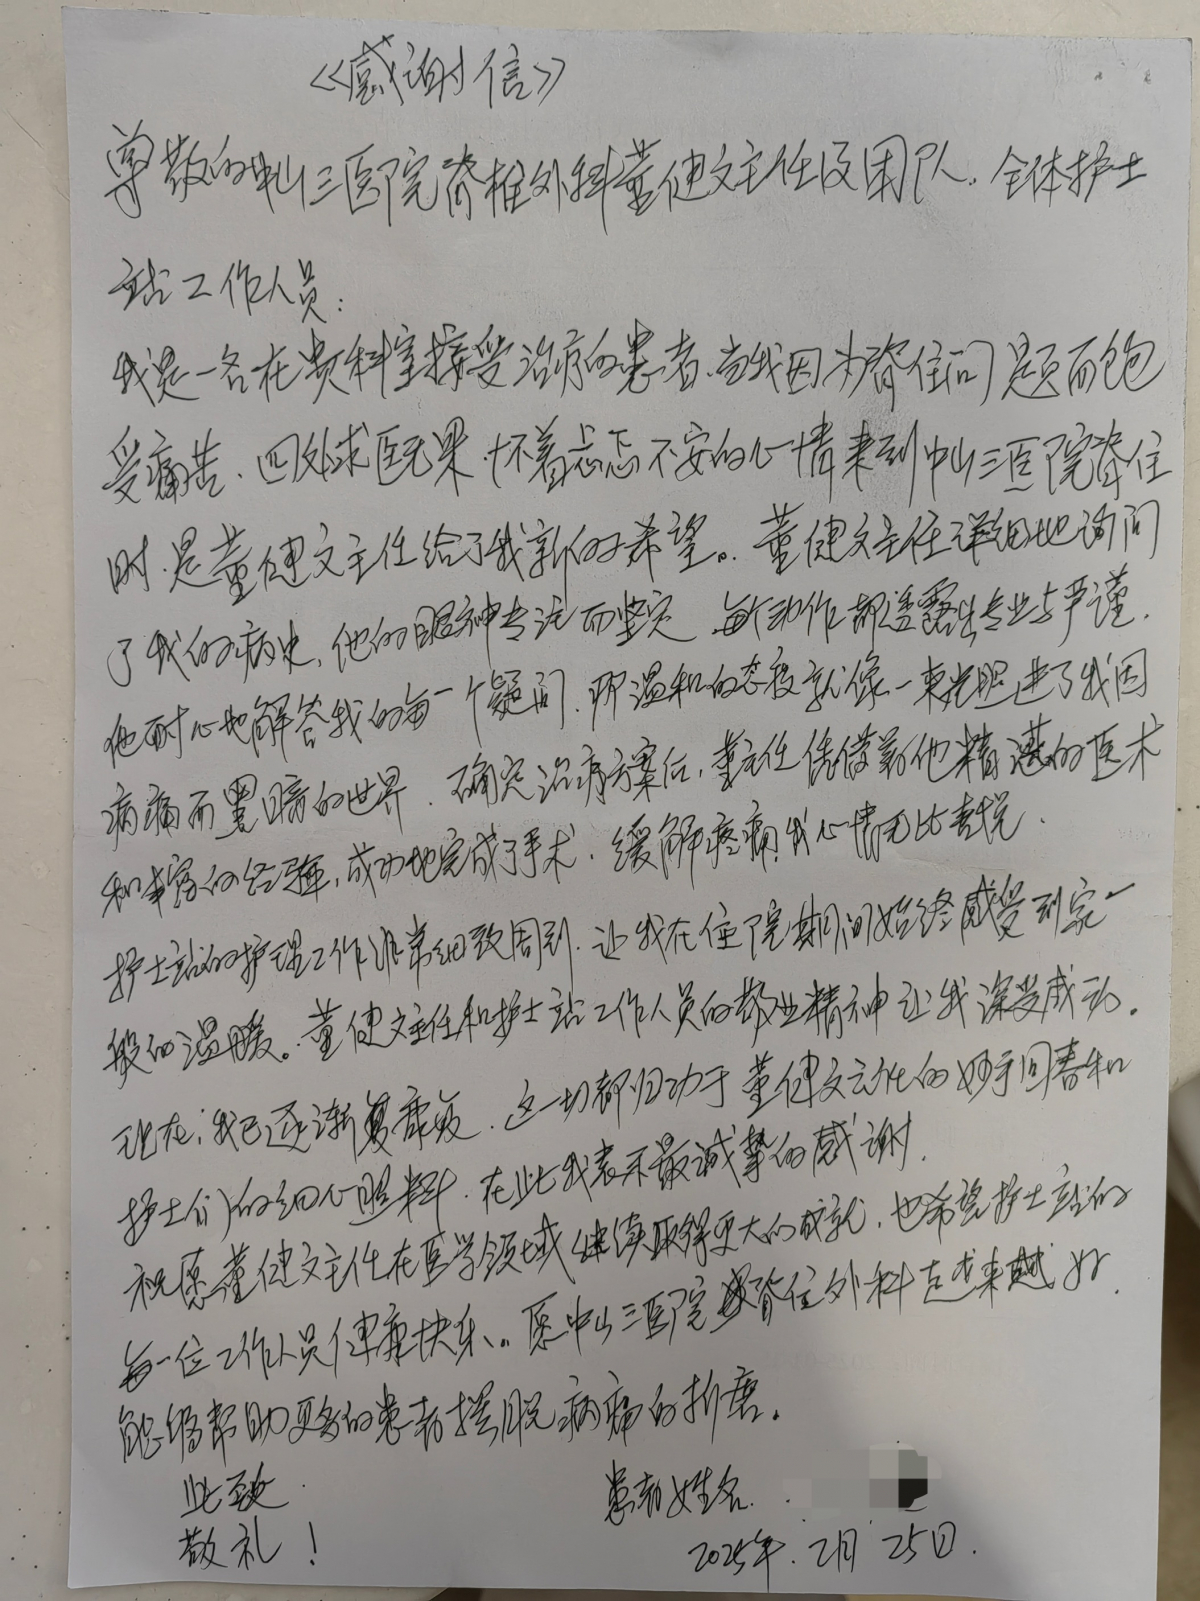 《感谢信》
尊敬的中山三医院脊椎外科董健文主任及团队、全体护士
站工作人员：
我是一名在贵科室接受治疗的患者、当我因为脊住问题而饱
受痛苦、四处求医无果、怀着忐忑不安的心情来到中山三医院脊住
时、是董健文主任给了我新的希望。董健文主任详细地询问
了我的病史、他的眼神专注而坚定、每个动作都透露出专业与严谨、
他耐心地解答我的每一个疑问、那温和的态度就像一束光照进了我因
病痛而黑暗的世界、确定治疗方案后，董主任凭借着他精湛的医术
和丰富的经验，成功地完成了手术、缓解疼痛、我心情无比喜悦、
护士站的护理工作非常细致周到、让我在住院期间始终感受到家一
般的温暖。董健文主任和护士站工作人员的敬业精神让我深受感动。
现在，我已逐渐复康复、这一切都归功于董健文主任的妙手回春和
护士们的细心照料、在此我表示最诚挚的感谢、
祝愿董健文主任在医学领域继续取得更大的成就、也希望护士站的
每一位工作人员健康快乐。愿中山三医院脊住外科越来越好、
能够帮助更多的患者摆脱病痛的折磨。
此致
敬礼！
患者姓名、
2025年、2月25日、